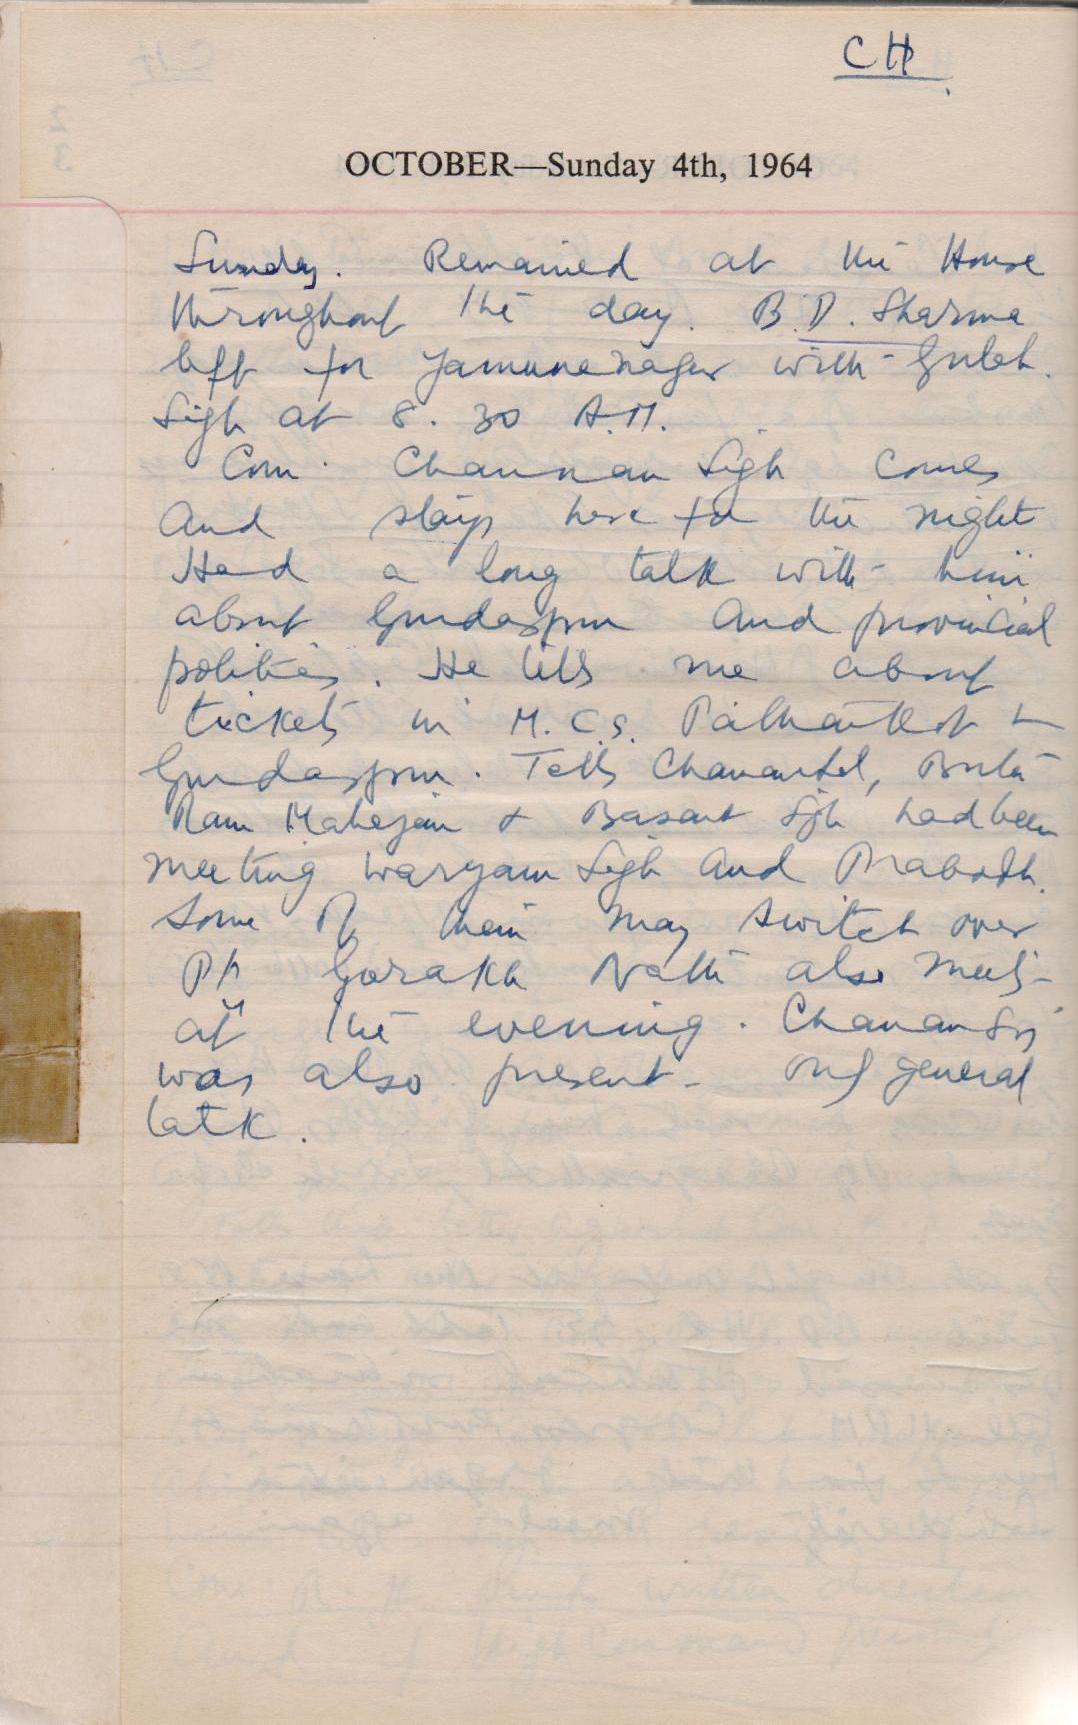 CH
OCTOBER—Sunday 4th, 1964
Sunday. Remained at the House
throughout the day. B.D. Sharma
left for Yamunanagar with Gulab
Sigh at 8.30 A.M.
Com. Channan Sigh comes
and stays here for the night
Had a long talk with him
about Gurdaspur and provincial
politics. He tells me about
tickets in M.C.S. Pathankot &
Gurdaspur. Tells
Ram Mahajan & Basant Sigh had been
meeting Waryam Sigh and Prabodh.
Some of them may switch over
Pt Gorakh Nath also meets
at the evening. Chanan
was also present. only general
talk.